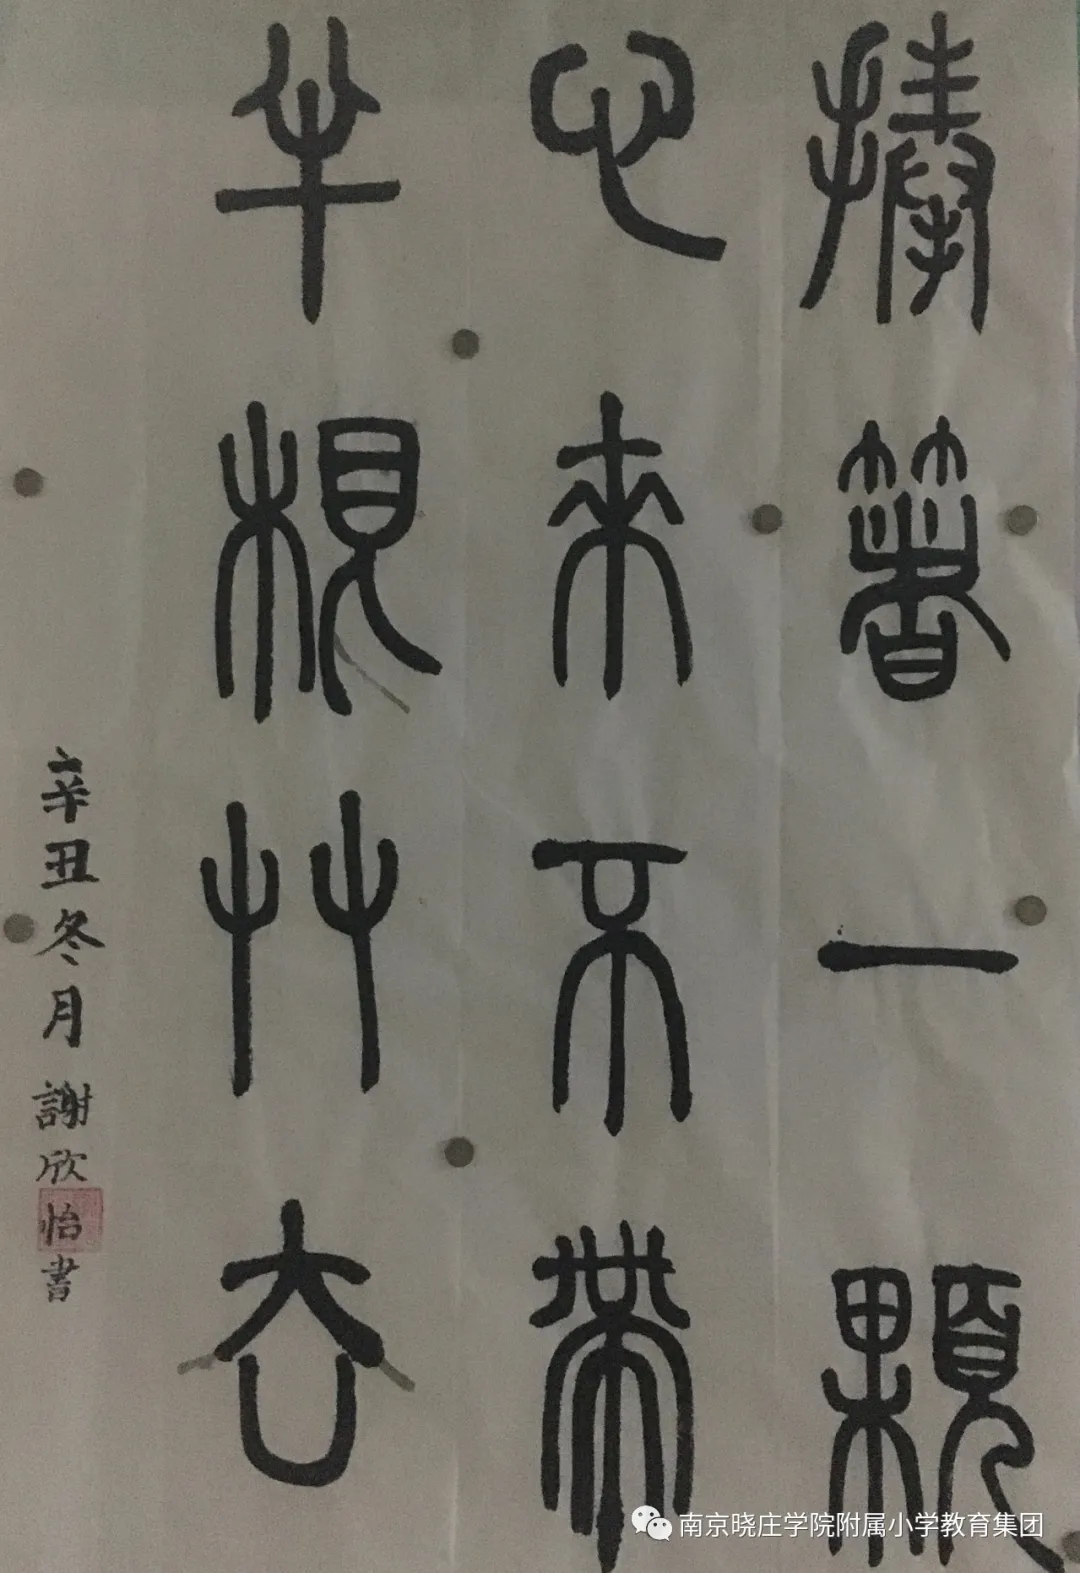 捧着一颗
心来不带
半根草去
辛丑冬月謝欣怡書
南京晓庄学院附属小学教育集团